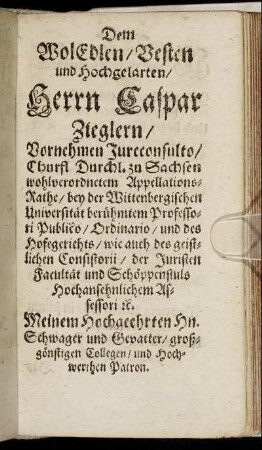 Dem
WolEdlen/Vesten
und Hochgelarten/
Herrn Caspar
Zieglern/
Vornehmen Jureconsulto/
Churfl Durchl. zu Sachsen
wohlverordnetem Appellations-
Rathe/ bey der Wittenbergischen
Universität berühmtem Professo-
ri Publico/ Ordinario/ und des
Hofegerichts/ wie auch des geist-
lichen Consistorii/ der Juristen
Facultät und Schöppenstuls
Hochansehnlichem As-
sessori ꝛc.
Meinem Hochgeehrten Hn.
Schwager und Gevatter/ groß-
günstigen Collegen/ und Hoch-
werthen Patron.